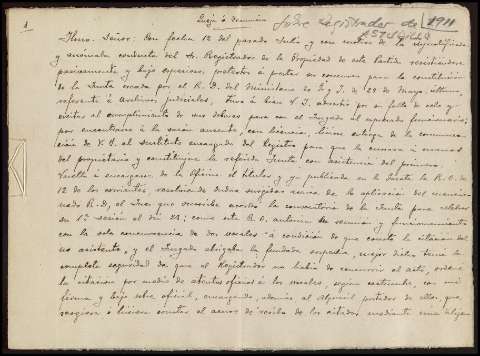 1
Queja ó denuncia
sobre registrador de 1911
Ilmo. Señor: Con fecha 12 del pasado Julio y con motivo de la injustificada
y anómala conducta del Sr. Registrador de la Propiedad de este Partido resistiéndose
pasivamente y bajo especiosos pretextos á prestar su concurso para la constitución
de la Junta creada por el R. D. del Ministerio de G. y J. de 29 de Mayo último,
referente á Archivos judiciales, tuvo á bien V. I. advertir por su falta de celo y
evitar al cumplimiento de sus deberes para con el Juzgado al expresado funcionario;
por encontrarse á la sazón ausente, con licencia, hícose entrega de la comunica-
ción de V. I. al sustituto encargado del Registro para que la cursara á manos
del propietario y constituyose la referida Junta con asistencia del primero.
Vuelto á encargarse de la Oficina el titular y ya publicada en la Gaceta la R. O. de
12 de los corrientes, resolutoria de dudas surgidas acerca de la aplicación del mencio-
nado R. D., el Juez que suscribe acordó la convocatoria de la Junta para celebrar
su 1ª sesión el día 23; como esta R. O. autoriza su reunión y funcionamiento
con la sola concurrencia de dos vocales á condición de que conste la citación del
no asistente, y el Juzgado abrigaba la fundada sospecha, mejor dicho tenía la
completa seguridad de que el Registrador no había de concurrir al acto, ordenó
la citación por medio de atentos oficios á los vocales, según costumbre, con mi
firma y bajo sobre oficial, encargando, además al Alguacil portador de ellos, que
recogiera ó hiciera constar el acuse de recibo de los citados mediante una